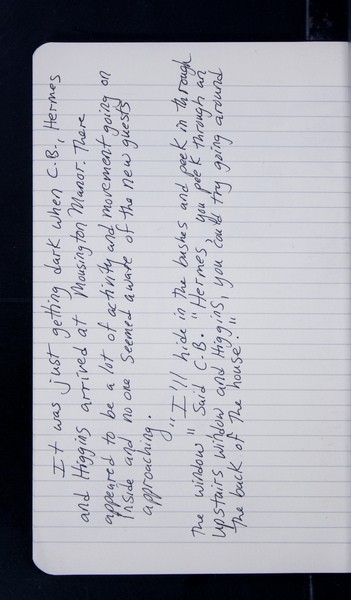 It was just getting dark when C.B., Hermes
and Higgins arrived at Mousington Manor. There
appeared to be a lot of activity and movement going on
inside and no one seemed aware of the new guests
approaching.
"I'll hide in the bushes and peek in through
the window" said C.B. "Hermes, you peek through an
upstairs window and Higgins, you could try going around
the back of the house."